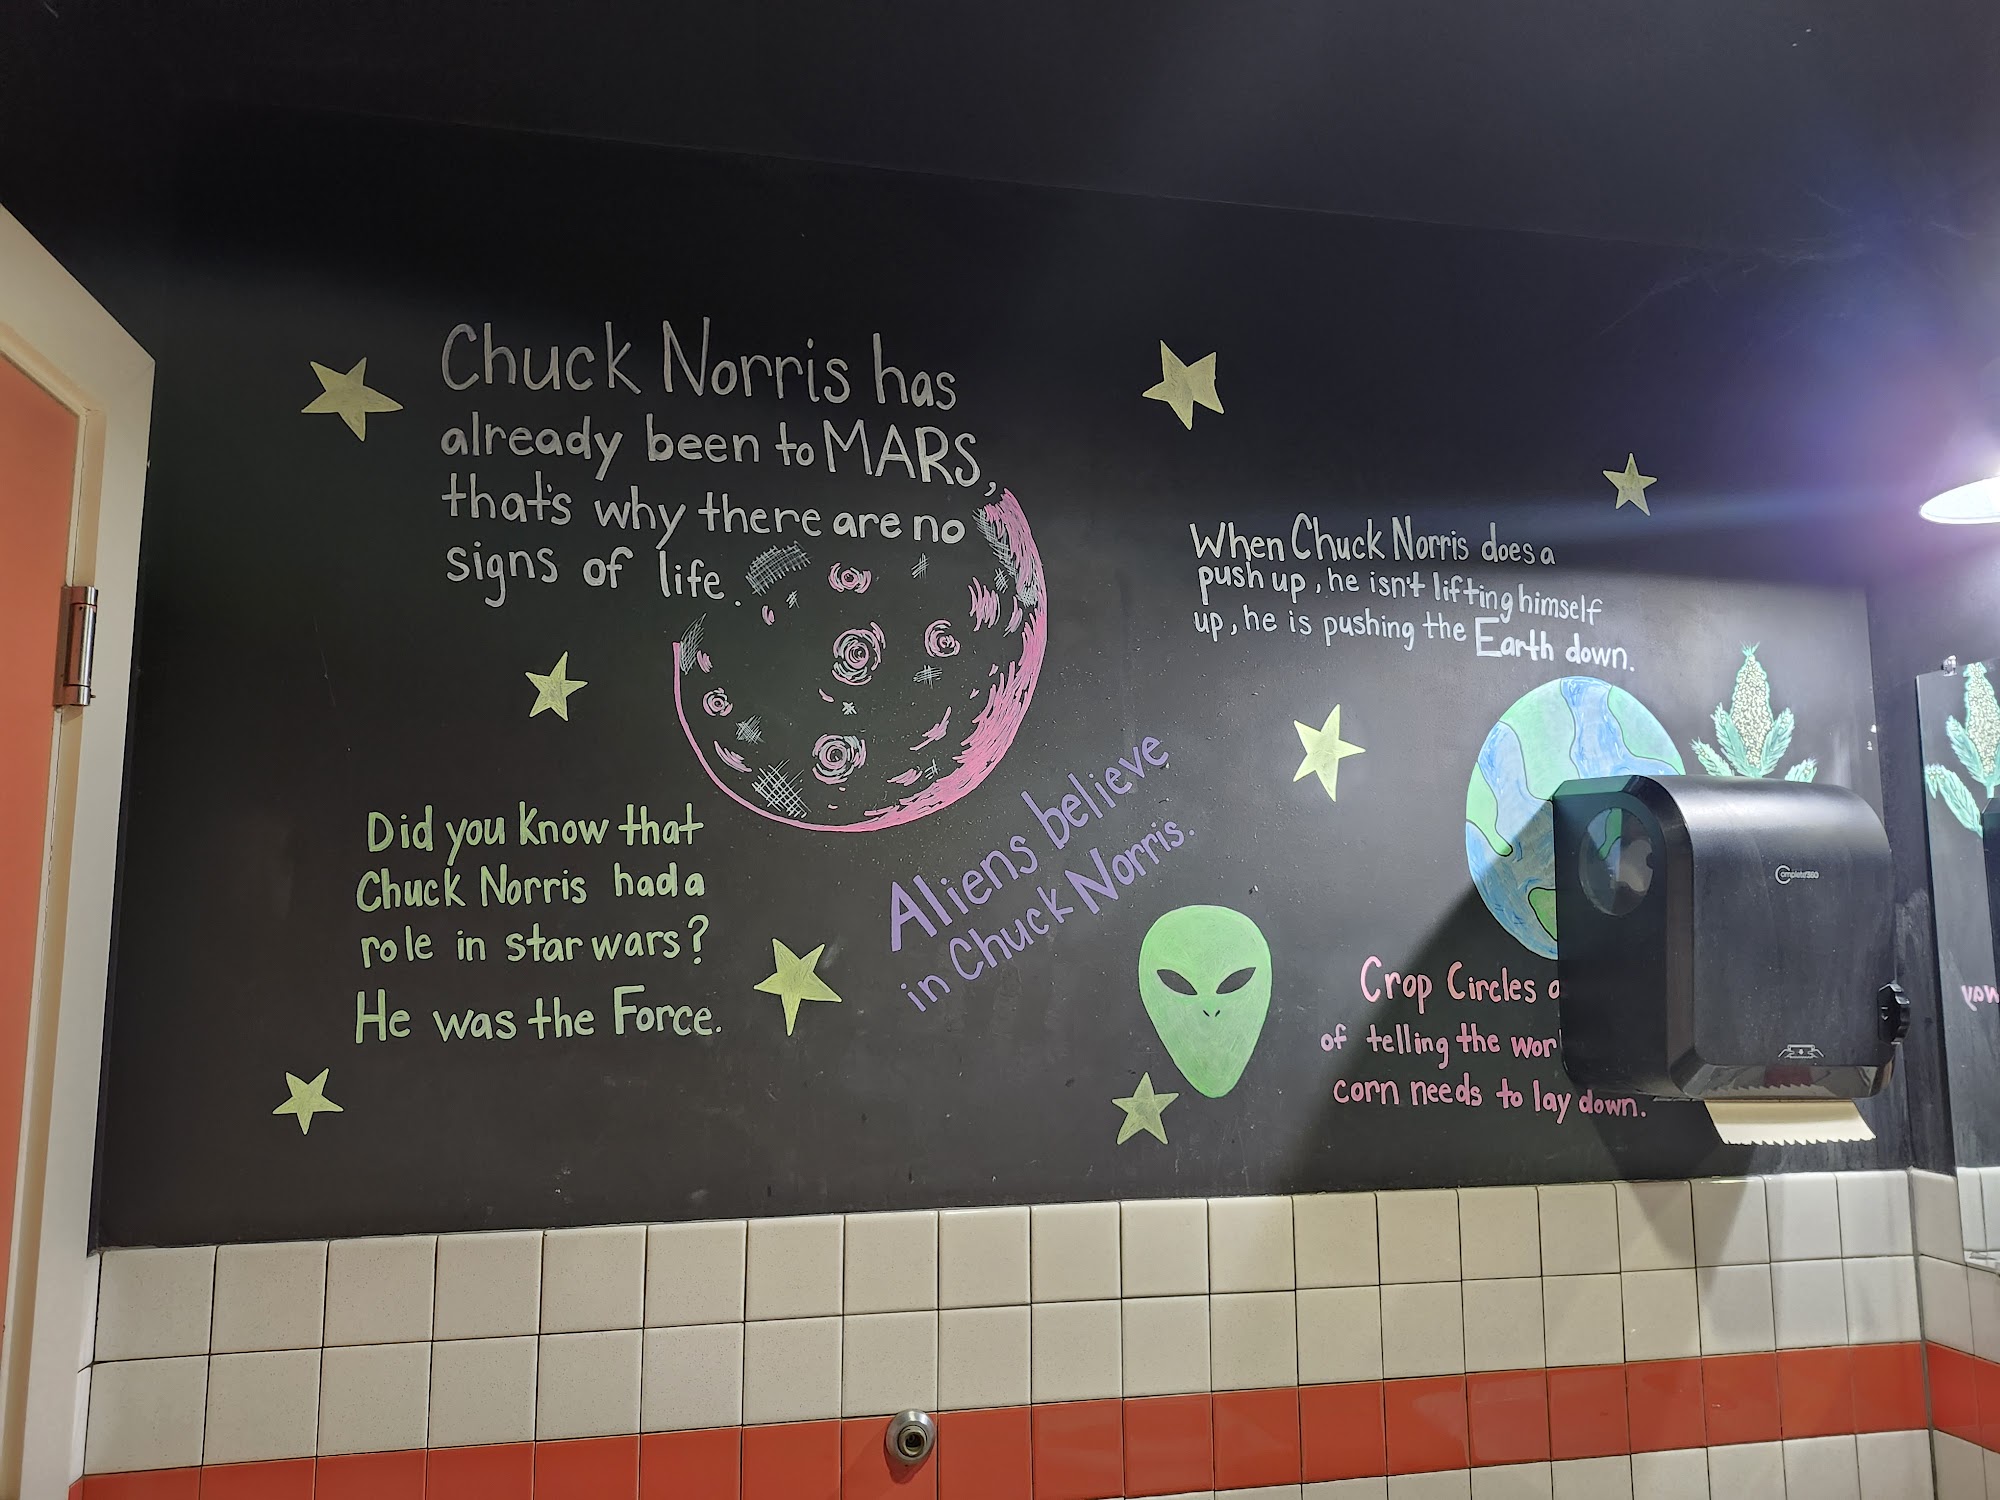 Chuck Norris has
already been to MARS,
that's why there are no
signs of life.
Did you know that
Chuck Norris had a
role in star wars?
He was the Force.
Aliens believe
in Chuck Norris.
When Chuck Norris does a
push up, he isn't lifting himself
up, he is pushing the
Earth down.
Crop Circles
of telling the
corn needs to lay down.